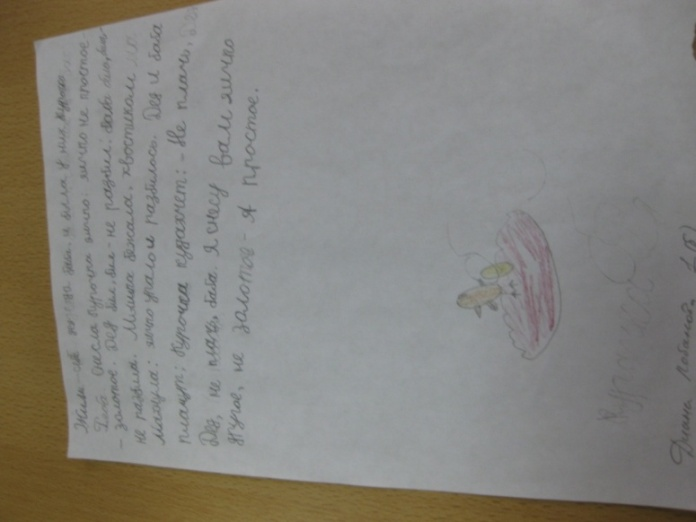 Жили-
Снесла курочка яичко. яичко не простое
- золотое. Дед бил, бил - не разбил. Баба била, била-
не разбила. Мышка бежала, хвостиком
махнула: яичко упало и разбилось. Дед и баба
плачут; Курочка кудахчет: - Не плачь,
Дед, не плачь, баба. Я снесу вам яичко
другое, не золотое - А простое.
Курочка
Диана